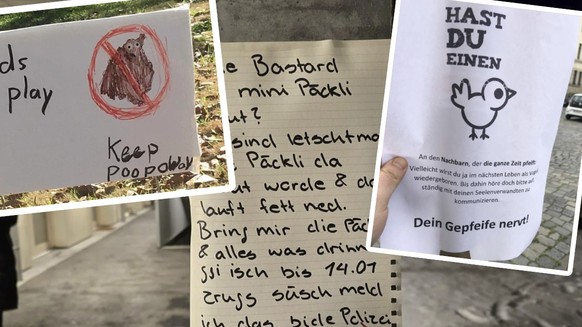 ds
play
Keep
poop away
e Bastard
mini Päckli
ut?
sind letschtmo
Päckli da
ut worde & da
lauft fett ned.
Bring mir die Päc
& alles was drinn
gsi isch bis 14.01
zrugg süsch meld
ich das bide Polizei
HAST
DU
EINEN
An den Nachbarn, der die ganze Zeit pfeift:
Vielleicht wirst du ja im nächsten Leben als Vogel
wiedergeboren. Bis dahin höre doch bitte auf
ständig mit deinen Seelenverwandten zu
kommunizieren.
Dein Gepfeife nervt!